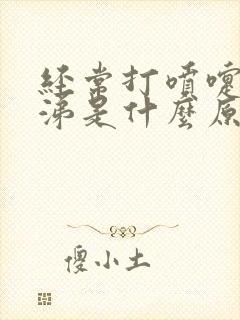 經常打噴嚏
涕是什麼原
傻小土